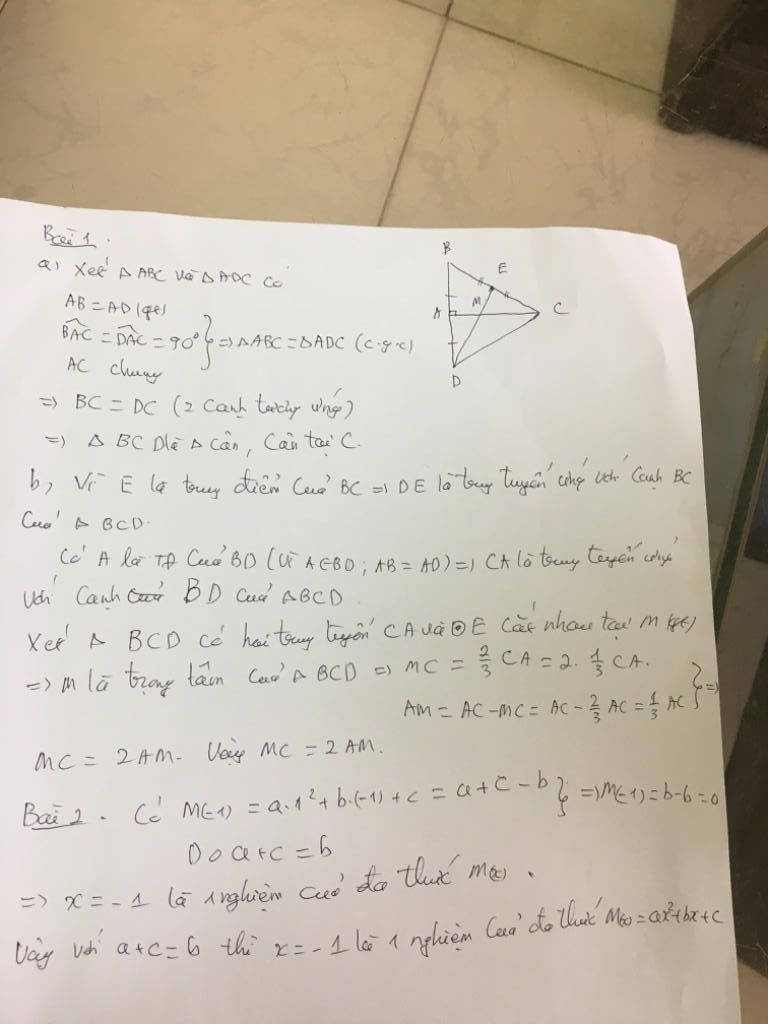 Bài 1.
a) Xét △ABC và △ADC có
AB = AD (gt)
BAC = DAC = 90° } => △ABC = △ADC (c.g.c)
AC chung
=> BC = DC (2 cạnh tương ứng)
=> △ BCD là △ cân, cân tại C.
b, Vì E là trung điểm của BC => DE là trung tuyến ứng với cạnh BC
của △ BCD.
Có A là TĐ của BD (vì A∈BD; AB = AD) => CA là trung tuyến ứng
với cạnh BD của △BCD.
Xét △ BCD có hai trung tuyến CA và DE cắt nhau tại M (gt)
=> M là trọng tâm của △ BCD => MC = 2/3 CA = 2. 1/3 CA.
AM = AC - MC = AC - 2/3 AC = 1/3 AC } =>
MC = 2AM. Vậy MC = 2AM.
Bài 2. Có M(-1) = a.1² + b.(-1) + c = a + c - b } => M(-1) = b-b = 0
Do a+c = b
=> x = -1 là 1 nghiệm của đa thức M(x).
Vậy với a+c = b thì x = -1 là 1 nghiệm của đa thức M(x) = ax²+bx+c
B
E
M
A
C
D